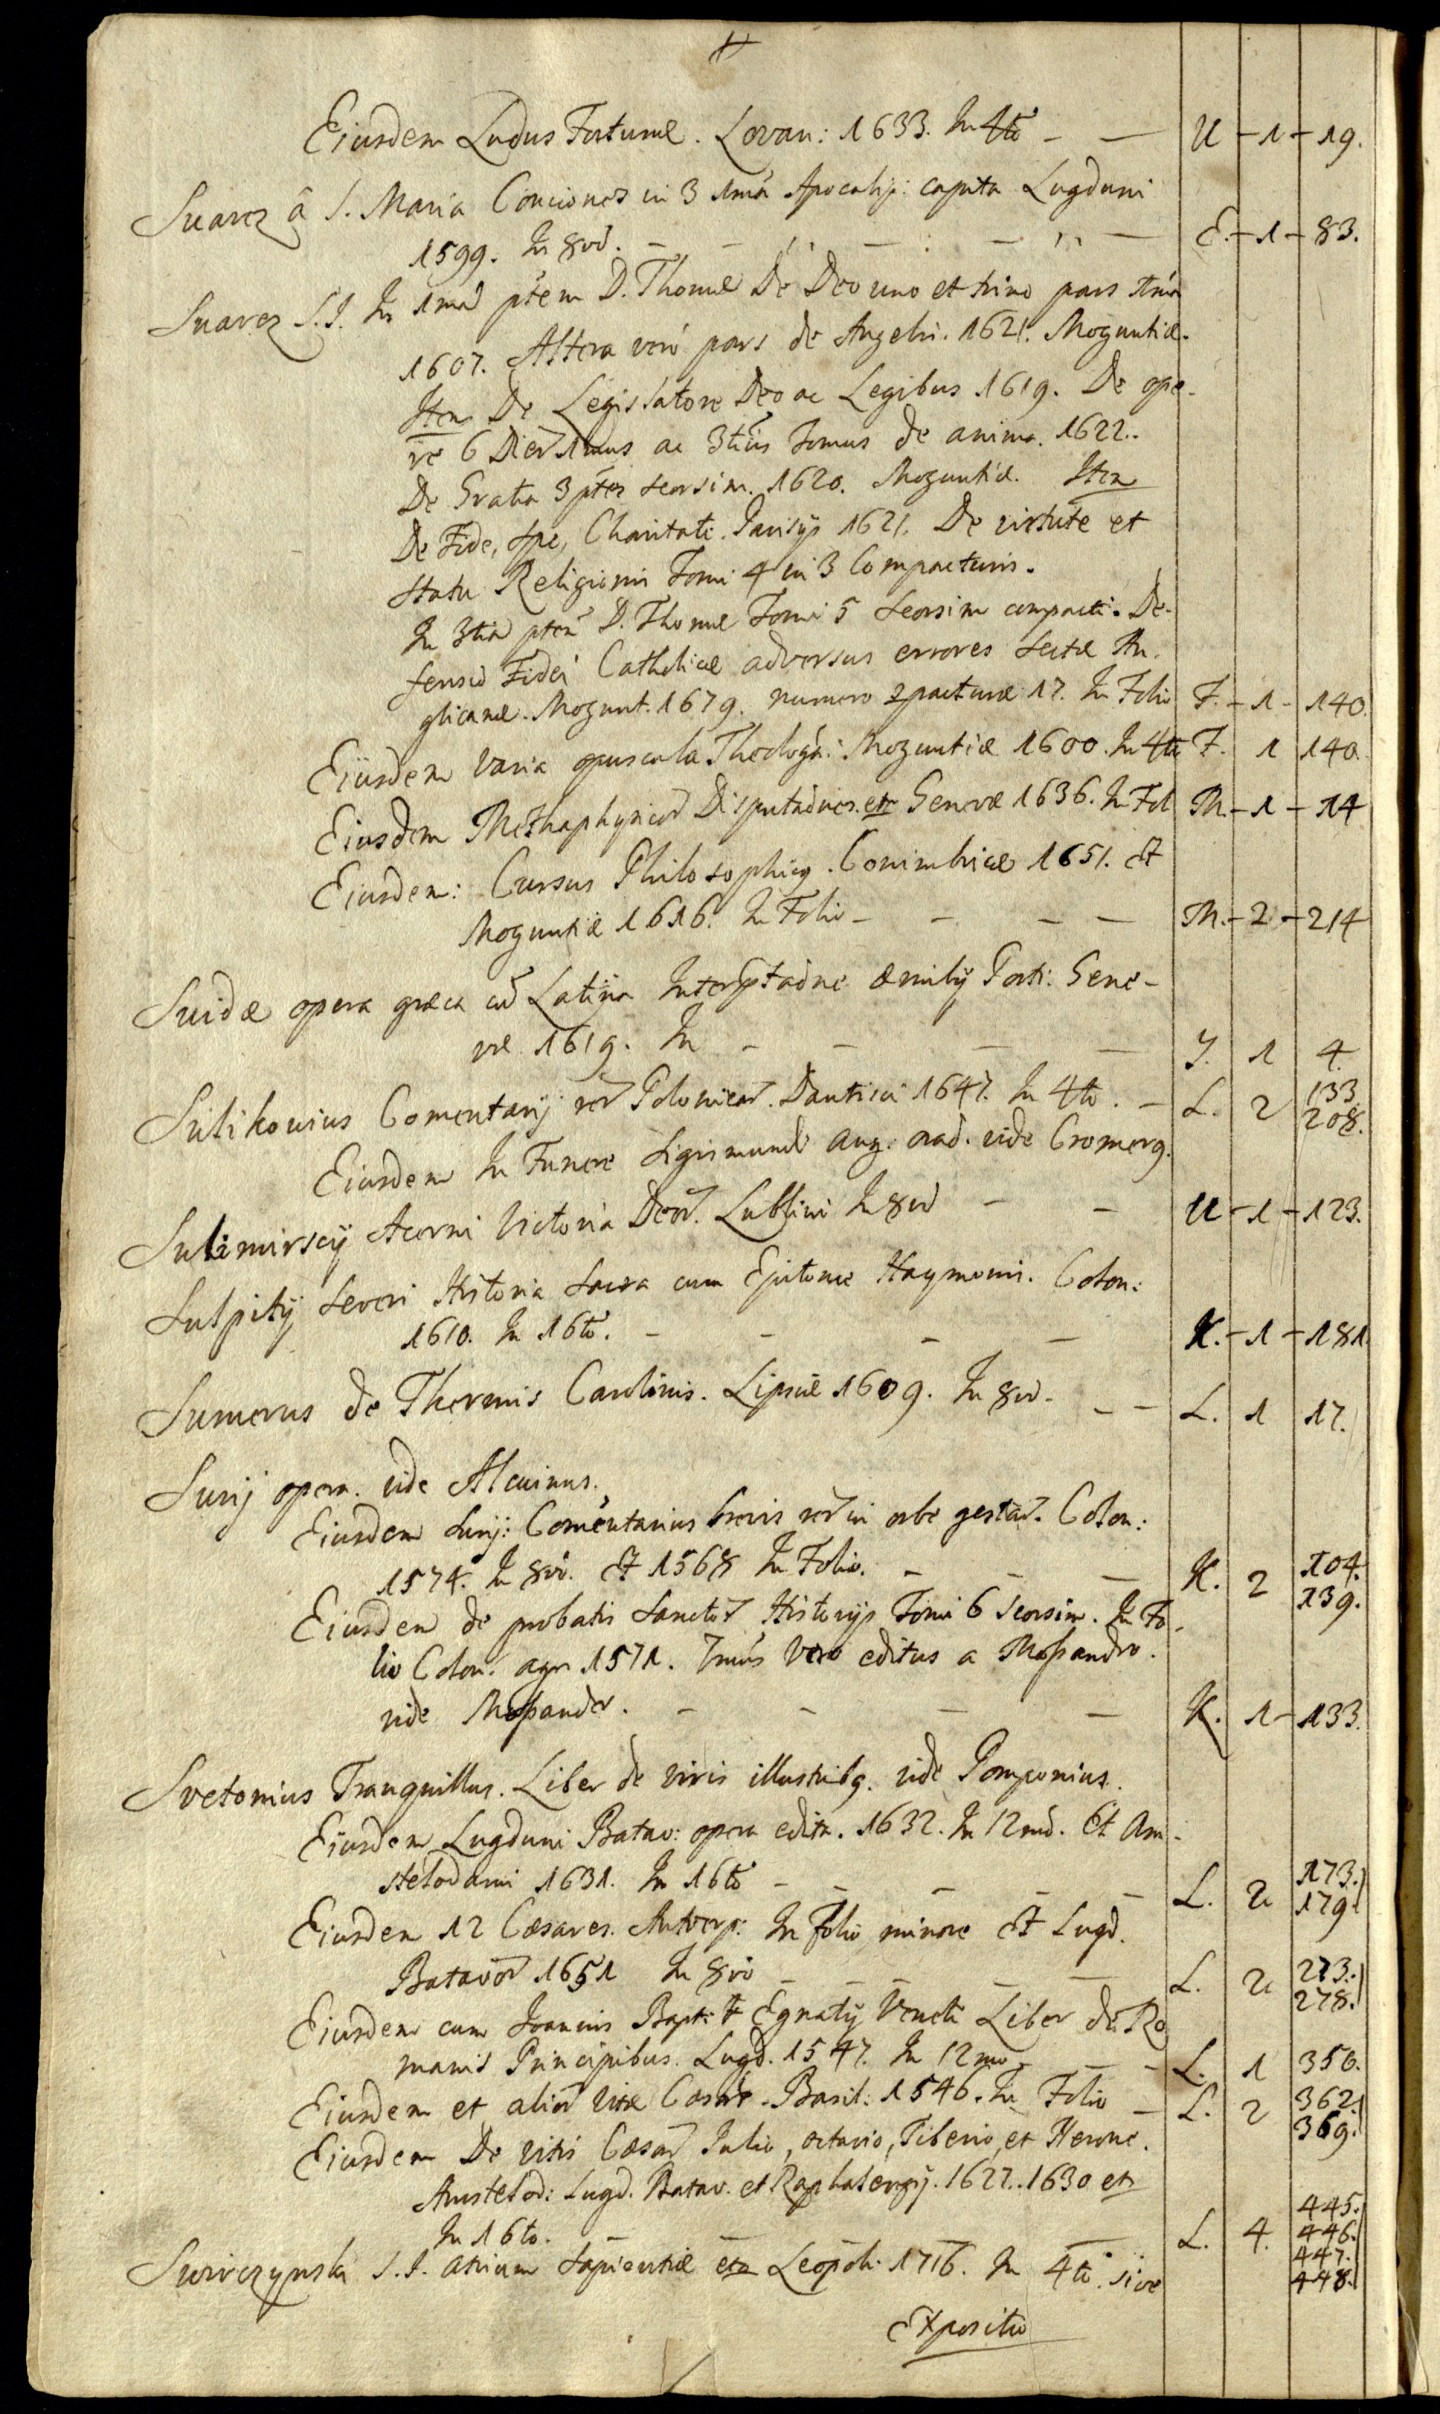 Eiusdem Ludus Fortunæ. Lovan: 1633. In 4to — — U — 1 — 19.
Suarez â S. Maria Conciones in 3 1mã Apocalip: capita Lugduni
1599. In 8vo. — — — — — E. — 1 — 83.
Suarez S.I. In 1mã ptem D. Thomæ De Deo uno et trino pars 1ma
1607. Altera verò pars de Angelis. 1621. Moguntiæ.
Item De Legislatore Deo ac Legibus 1619. De ope-
re 6 Dier 1mus ac 3tius tomus de anima. 1622.
De Gratia 3 ptes seorsim. 1620. Moguntiæ. Item
De Fide, spe, Charitate. Parisijs 1621. De virtute et
statu Religionis Tomi 4 in 3 Compacturis.
In 3tiã ptem D. Thomæ Tomi 5 seorsim compacti. De-
fensio Fidei Catholicæ adversus errores sectæ An-
glicanæ. Mogunt. 1679. numero 2pacturæ 17. In Folio F. — 1 — 140.
Eiusdem varia opuscula Theologa: Moguntiæ 1600. In 4to F. 1 140.
Eiusdem Methaphysicor Disputadnes. etc Genevæ 1636. In Fol M. — 1 — 14
Eiusdem: Cursus Philosophicg. Conimbricæ 1651. Et
Moguntiæ 1616. In Folio — — — — M. — 2 — 214
Suidæ opera græca cu Latina Interptadne Æmilij Porti: Gene-
væ 1619. In — — — — I. 1 4.
Sulikovius Comentarij rer Polonicar. Dantisci 1647. In 4to. — L. 2 133. 208.
Eiusdem In Funere Sigismundi Aug. orad. vide Cromerg.
Sulimirscij Acorni Victoria Deor. Lublini In 8vo — — U — 1 — 123.
Sulpitij Severi Historia Sacra cum Epitome Haymonis. Colon:
1610. In 16to. — — — — K. — 1 — 181.
Sumerus de Thermis Carolinis. Lipsiæ 1609. In 8vo. — — L. 1 17.
Surij opera. vide Alcuinus.
Eiusdem Surij: Comentarius brevis rer in orbe gestar. Colon:
1574. In 8vo. Et 1568 In Folio. — — — K. 2 104. 139.
Eiusdem de probatis Sanctor Historijs Tomi 6 Seorsim. In Fo-
lio Colon: agr 1571. 7mus vero editus a Mosandro.
vide Mosander. — — — — K. 1 — 133.
Svetonius Tranquillus. Liber de viris illustribg. vide Pomponius.
Eiusdem Lugduni Batav: opera edita. 1632. In 12mo. Et Am-
stelodami 1631. In 16to — — — — — L. 2 173. 179.
Eiusdem 12 Cæsares. Antverp: In Folio minore Et Lugd.
Batavor 1651 In 8vo — — — — — L. 2 273. 278.
Eiusdem cum Joannis Bapt: Egnatij Veneti Liber de Ro
manis Principibus. Lugd. 1547. In 12mo — — — L. 1 350.
Eiusdem et alior vitæ Cæsar. Basil: 1546. In Folio — L. 2 362. 369.
Eiusdem De vitis Cæsar Julio, octavio, Tiberio, et Nerone.
Amstelod: Lugd. Batav. et Raphalengij. 1627. 1630 et
In 16to. — — — L. 4. 445. 446. 447. 448.
Swirczynski S.I. atrium sapientiæ etc Leopoli. 1716. In 4to. sive
Expositio